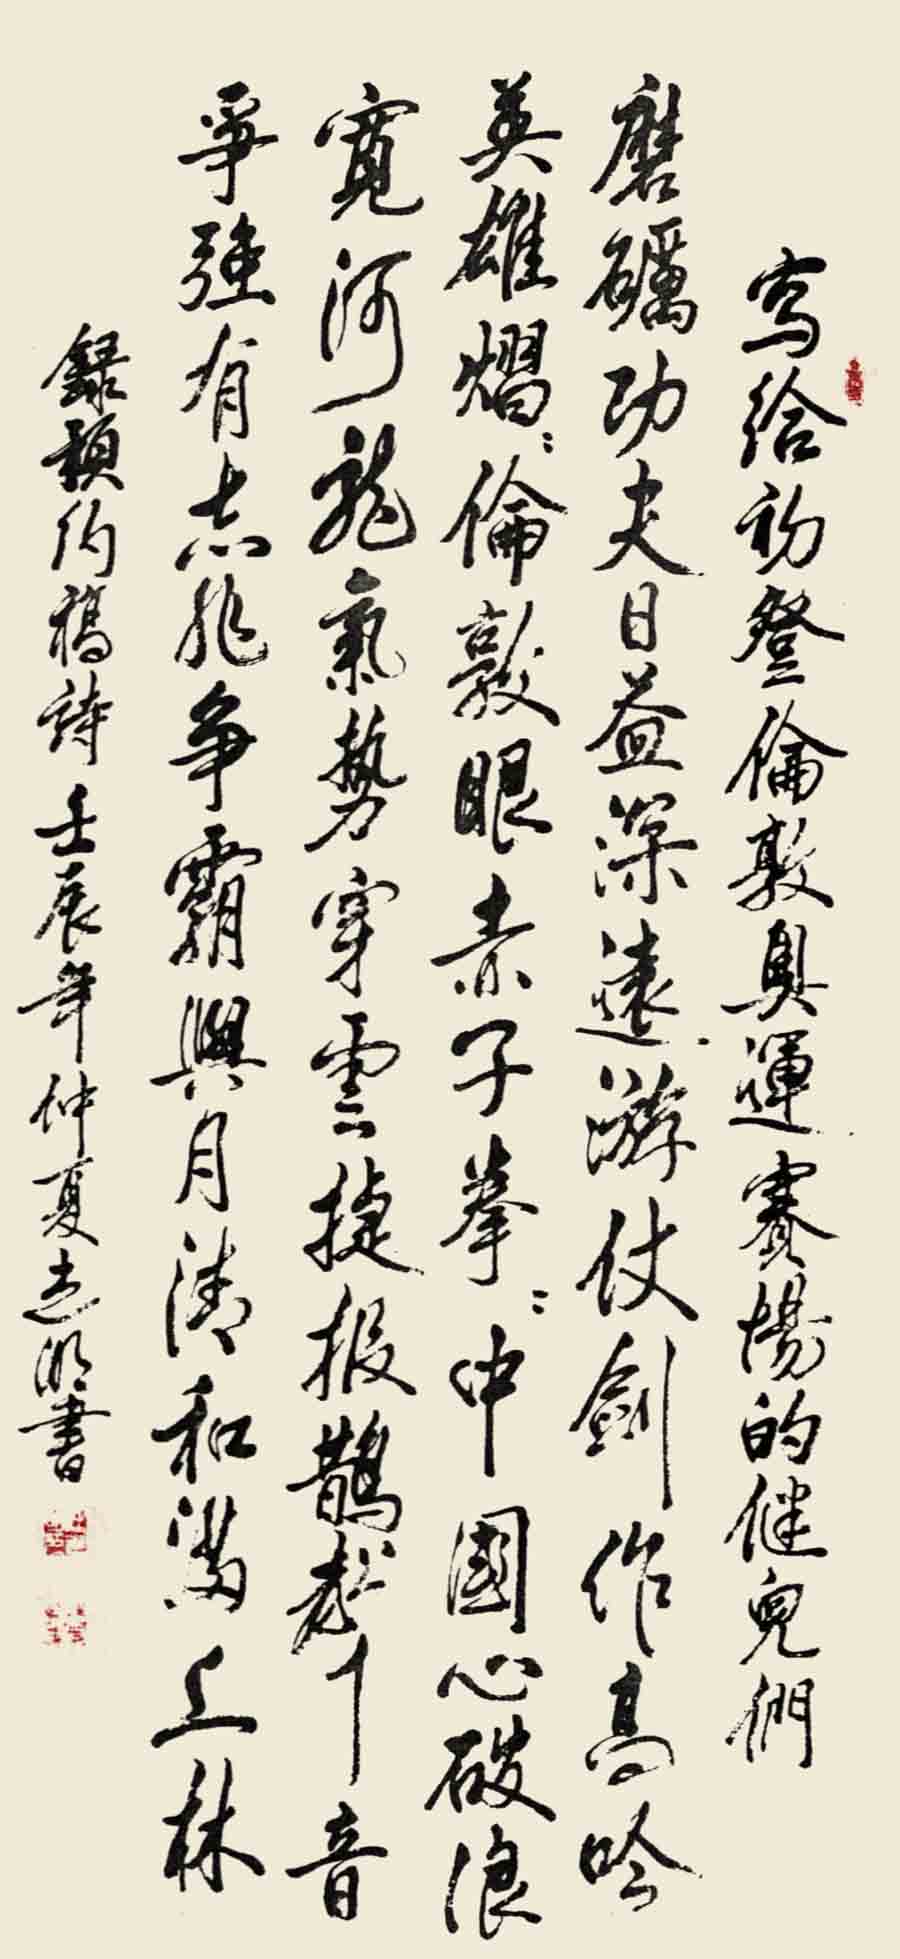 寫給初登倫敦奧運賽場的健兒們
磨礪功夫日益深遠游仗劍作高吟
英雄熠〻倫敦眼赤子拳〻中國心破浪
寬河龍氣勢穿雲捷報鵲聲音
爭強有志非争霸與月清和滿上林
錄約稿詩壬辰年仲夏志書